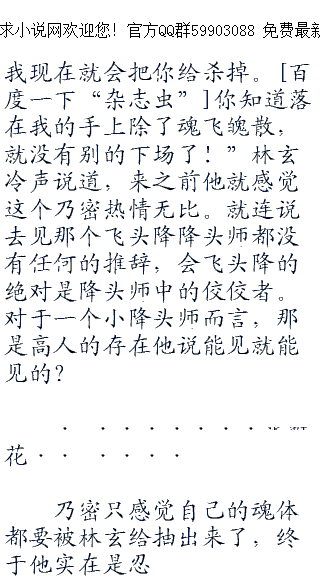 求小说网欢迎您！官方QQ群59903088 免费最新
我现在就会把你给杀掉。[百
度一下“杂志虫”]你知道落
在我的手上除了魂飞魄散，
就没有别的下场了！”林玄
冷声说道，来之前他就感觉
这个乃密热情无比。就连说
去见那个飞头降降头师都没
有任何的推辞，会飞头降的
绝对是降头师中的佼佼者。
对于一个小降头师而言，那
是高人的存在他说能见就能
见的？
．．．．．．．．
花．．．．．．
乃密只感觉自己的魂体
都要被林玄给抽出来了，终
于他实在是忍